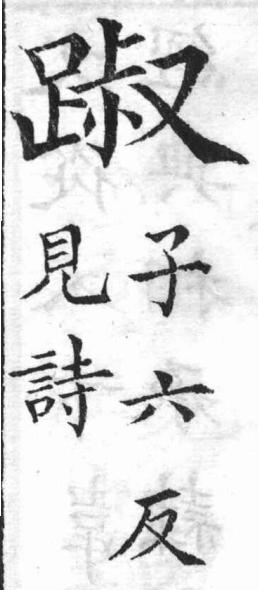 踧
子六反
見詩